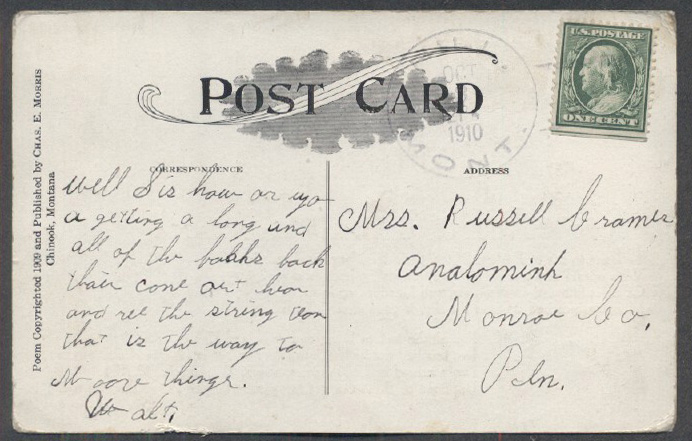 POST CARD
U.S. POSTAGE
ONE CENT
OCT
1910
MONT.
CORRESPONDENCE
ADDRESS
Poem Copyrighted 1909 and Published by CHAS. E. MORRIS
Chinook, Montana
Well Sis how ar yo
a getting a long und
all of the back
thair cone out hear
and see the string teon
that is the way to
Moove things.
Walt.
Mrs. Russell Cramer
Analomink
Monroe Co,
Pen.